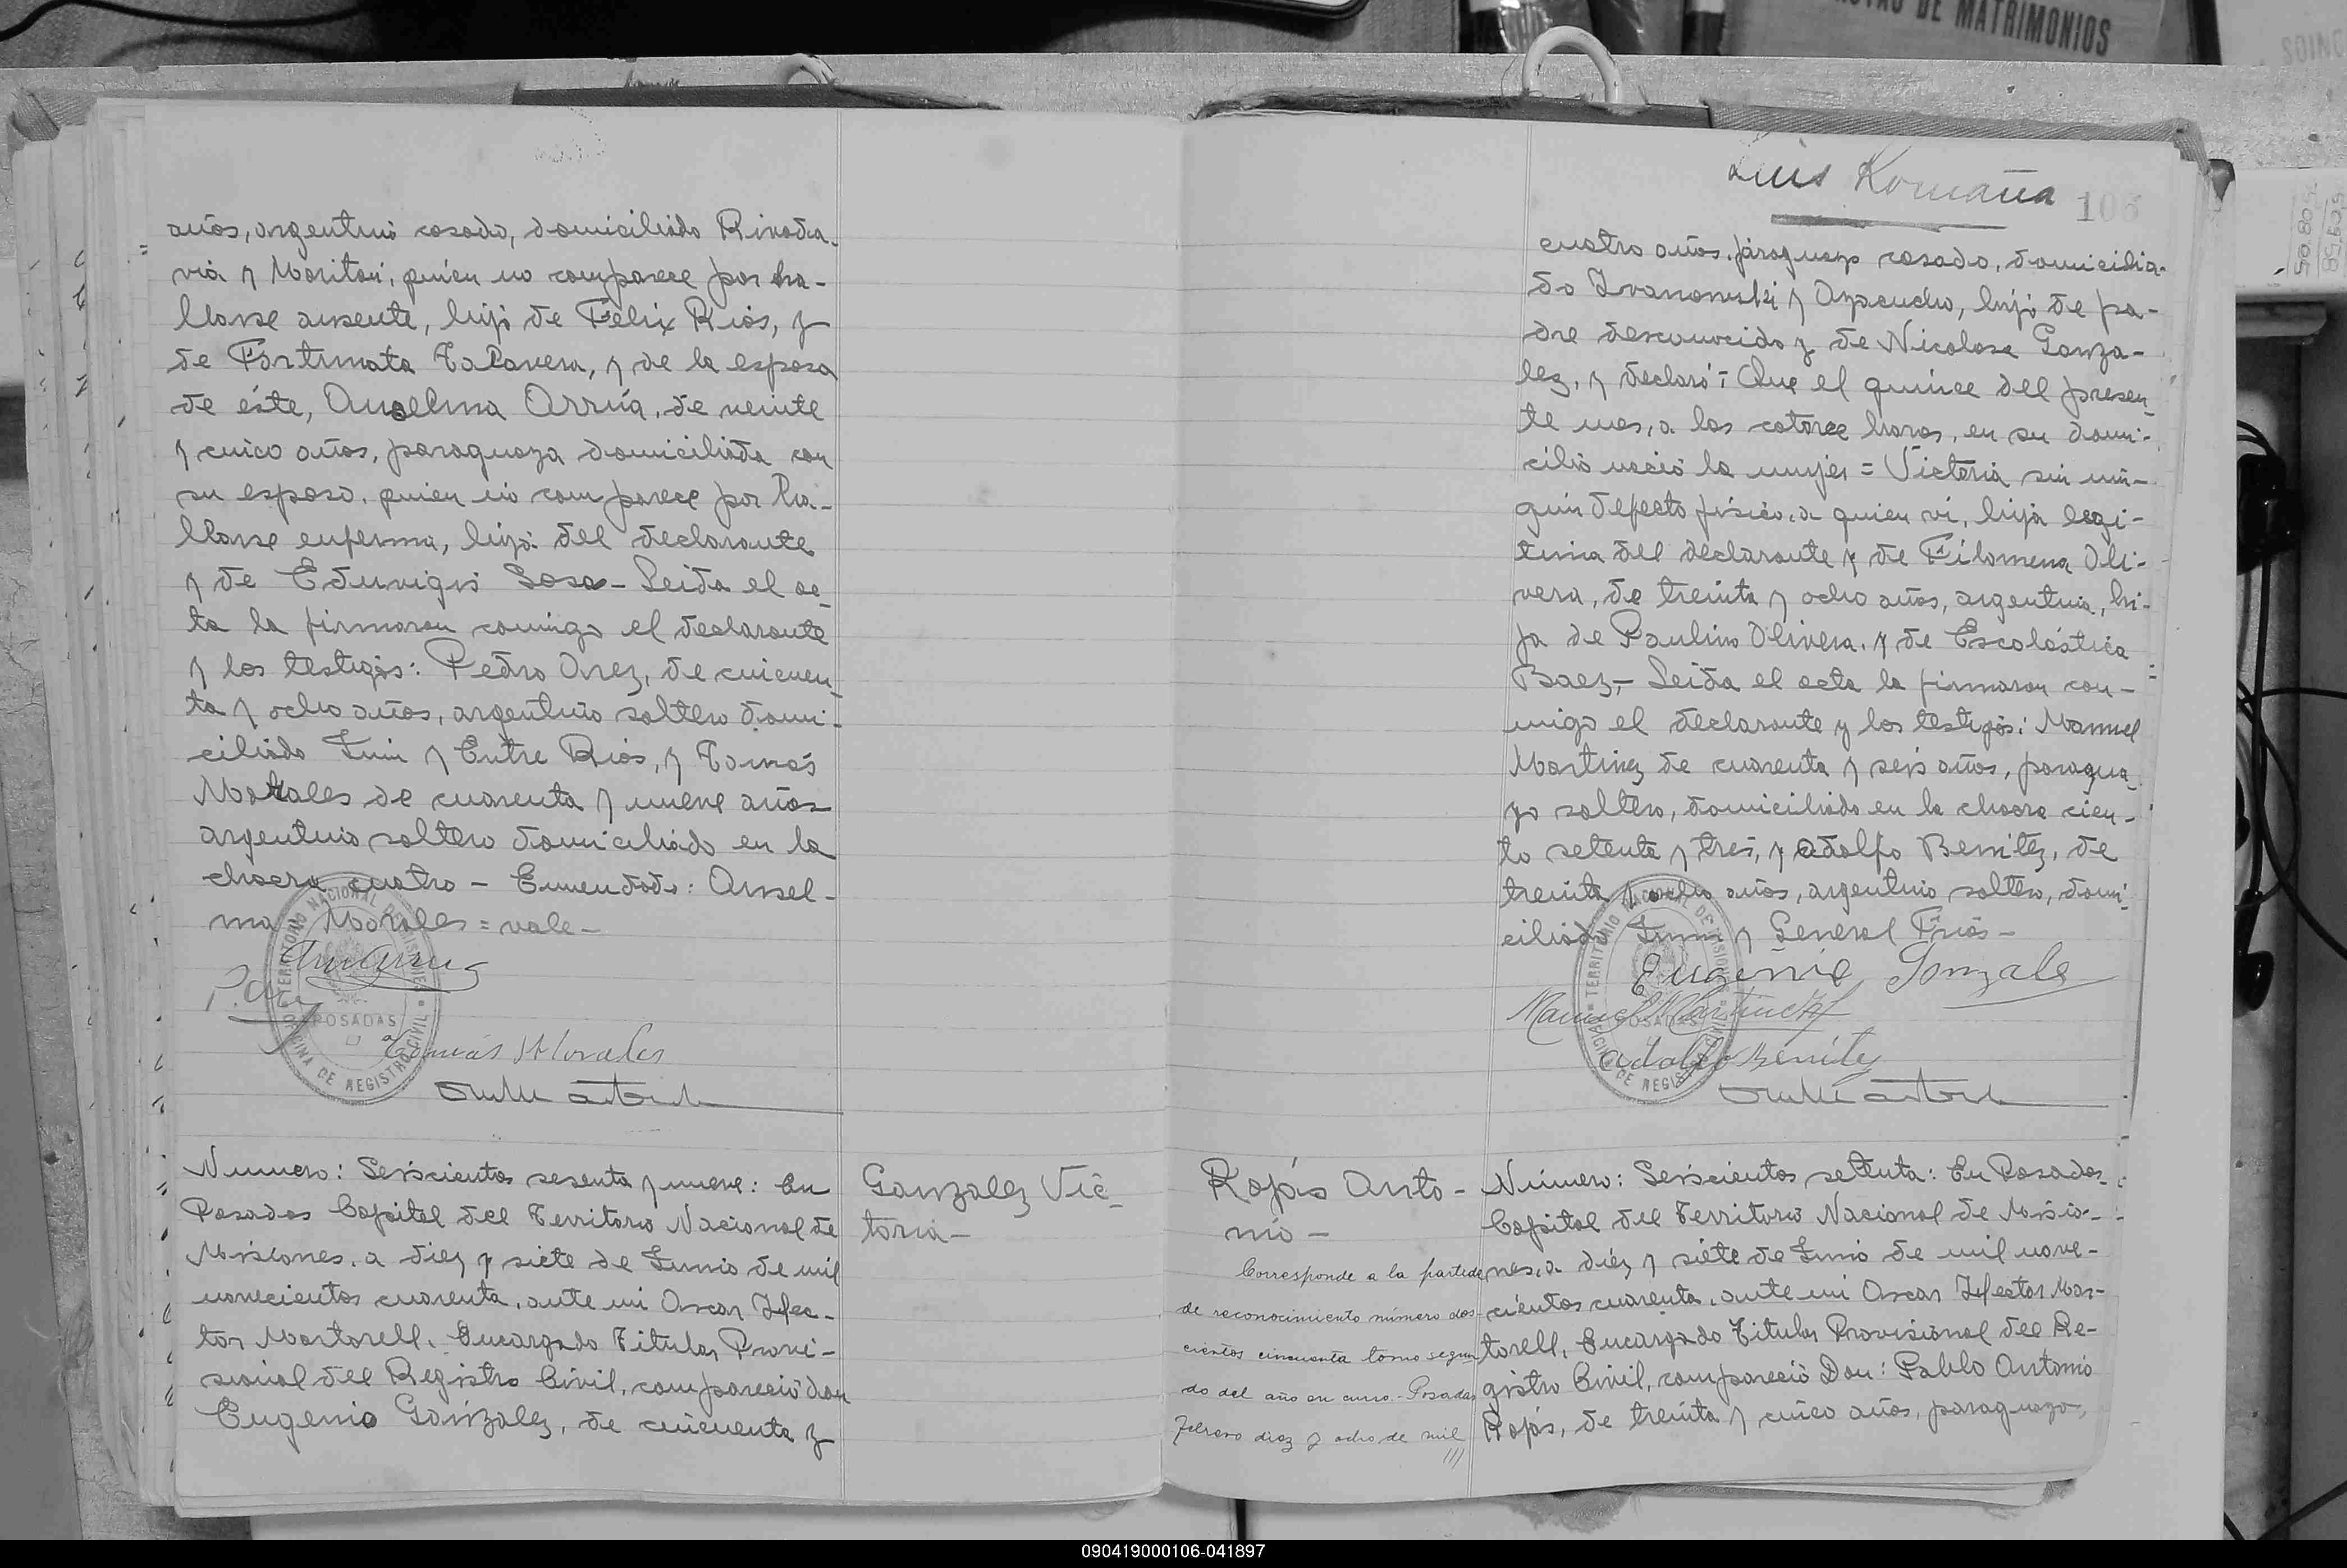 años, argentino casado, domiciliado Rivada-
via y Moritan, quien no comparece por ha-
llarse ausente, hijo de Felix Rios, y
de Fortunata Talavera, y de la esposa
de éste, Anselma Arrúa, de veinte
y cinco años, paraguaya domiciliada con
su esposo, quien no comparece por ha-
llarse enferma, hija del declarante
y de Eduvigis Sosa - Leida el ac-
ta la firmaron conmigo el declarante
y los testigos: Pedro Arez, de cincuen-
ta y ocho años, argentino soltero domi-
ciliado Junin y Entre Rios, y Tomás
Morales de cuarenta y nueve años
argentino soltero domiciliado en la
chacra cuatro - Enmendado: Ansel-
ma Morales = vale -
TERRITORIO NACIONAL DE MISIONES
OFICINA DE REGISTRO CIVIL
POSADAS
Tomás Morales
Numero: Seiscientos sesenta y nueve: En
Posadas Capital del Territorio Nacional de
Misiones, a diez y siete de Junio de mil
novecientos cuarenta, ante mi Oscar Hec-
tor Martorell, Encargado Titular Provi-
sional del Registro Civil, compareció don
Eugenio Gonzalez, de cincuenta y
Gonzalez Vic-
toria -
Luis Romaña
106
cuatro años, paraguayo casado, domicilia-
do Ivanowski y Ayacucho, hijo de pa-
dre desconocido y de Nicolasa Gonza-
lez, y declaró: Que el quince del presen-
te mes, a las catorce horas, en su domi-
cilio nació la mujer = Victoria sin nin-
gún defecto físico, a quien vi, hija legi-
tima del declarante y de Filomena Oli-
vera, de treinta y ocho años, argentina, hi-
ja de Paulino Olivera, y de Escolástica
Baez, - Leida el acta la firmaron con-
migo el declarante y los testigos: Manuel
Martinez de cuarenta y seis años, paragua-
yo soltero, domiciliado en la chacra cien-
to setenta y tres, y Adolfo Benitez, de
treinta y ocho años, argentino soltero, domi-
ciliado Junin y General Frias -
Eugenio Gonzale
Manuel Martinez
Adolfo Benitez
TERRITORIO NACIONAL DE MISIONES
OFICINA DE REGISTRO CIVIL
POSADAS
Rojas Anto-
nio -
Corresponde a la partida
de reconocimiento número dos-
cientos cincuenta tomo segun
do del año en curso - Posadas
Febrero diez y ocho de mil
///
Número: Seiscientos setenta: En Posadas
Capital del Territorio Nacional de Misio-
nes, a diez y siete de Junio de mil nove-
cientos cuarenta, ante mi Oscar Hector Mar-
torell, Encargado Titular Provisional del Re-
gistro Civil, compareció Don: Pablo Antonio
Rojas, de treinta y cinco años, paraguayo,
DE MATRIMONIOS
090419000106-041897